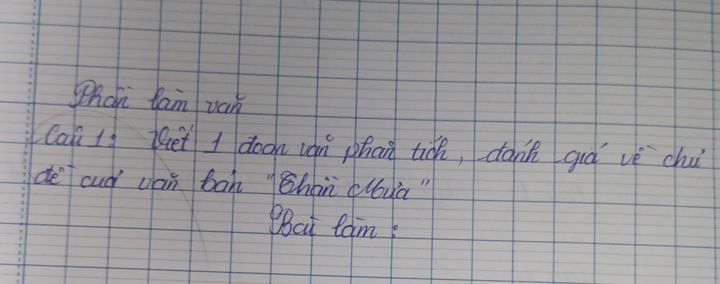 Phần làm văn
Câu 1: Viết 1 đoạn văn phân tích, đánh giá về chủ
đề của văn bản "Thần Mưa"
Bài làm: